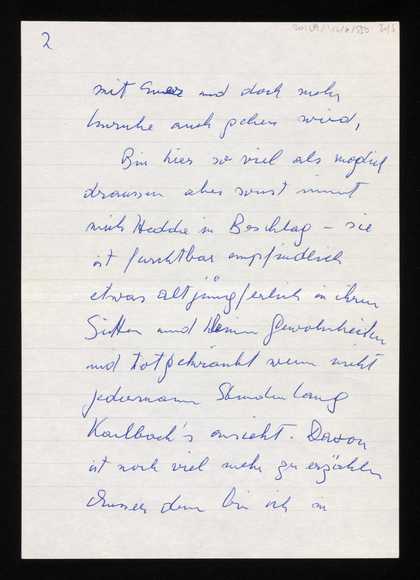 2
mit und doch mehr
Unruhe auch geben wird,
Bin hier so viel als möglich
draussen aber sonst nimmt
mich Hedda in Beschlag – sie
ist furchtbar empfindlich
etwas altjüngferlich in ihren
Sitten und Gewohnheiten
und totgekränkt wenn nicht
jedermann Stundenlang
Kaulbach's ansieht. Davon
ist noch viel mehr zu erzählen
Ausser dem bin ich in